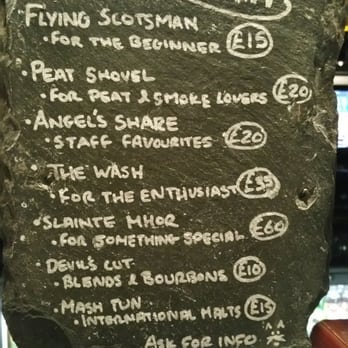 FLYING SCOTSMAN
• FOR THE BEGINNER £15
• PEAT SHOVEL
• FOR PEAT & SMOKE LOVERS £20
• ANGEL'S SHARE
• STAFF FAVOURITES £20
• THE WASH
• FOR THE ENTHUSIAST £35
• SLAINTE MHOR
• FOR SOMETHING SPECIAL £60
• DEVIL'S CUT
• BLENDS & BOURBONS £10
• MASH TUN
• INTERNATIONAL MALTS £15
ASK FOR INFO